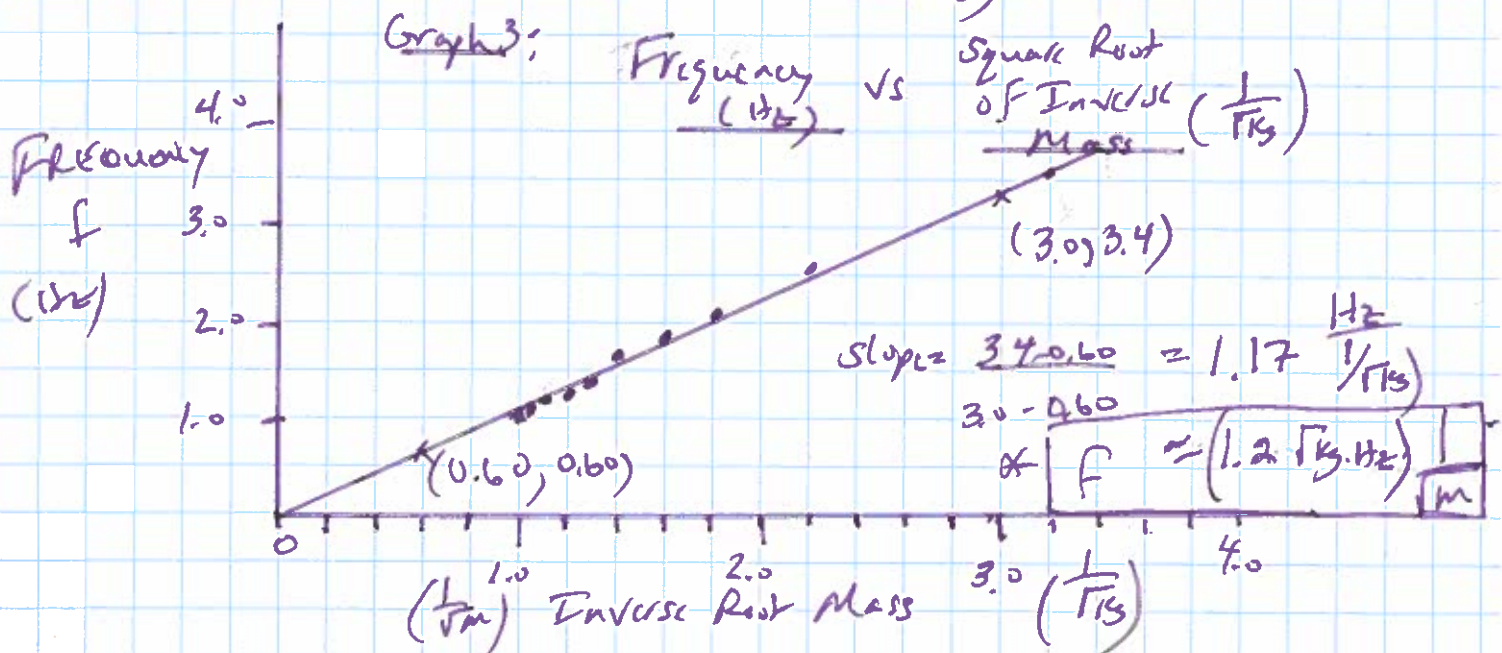 Graph 3: Frequency (Hz) vs Square Root of Inverse Mass (1/√kg)
4.0
Frequency
f
(Hz)
3.0
2.0
1.0
(3.0, 3.4)
(0.60, 0.60)
slope = 3.4-0.60 / 3.0-0.60 = 1.17 Hz / 1/√kg
* f ≈ (1.2 √kg·Hz) 1/√m
0
1.0
2.0
3.0
4.0
(1/√m) Inverse Root Mass (1/√kg)